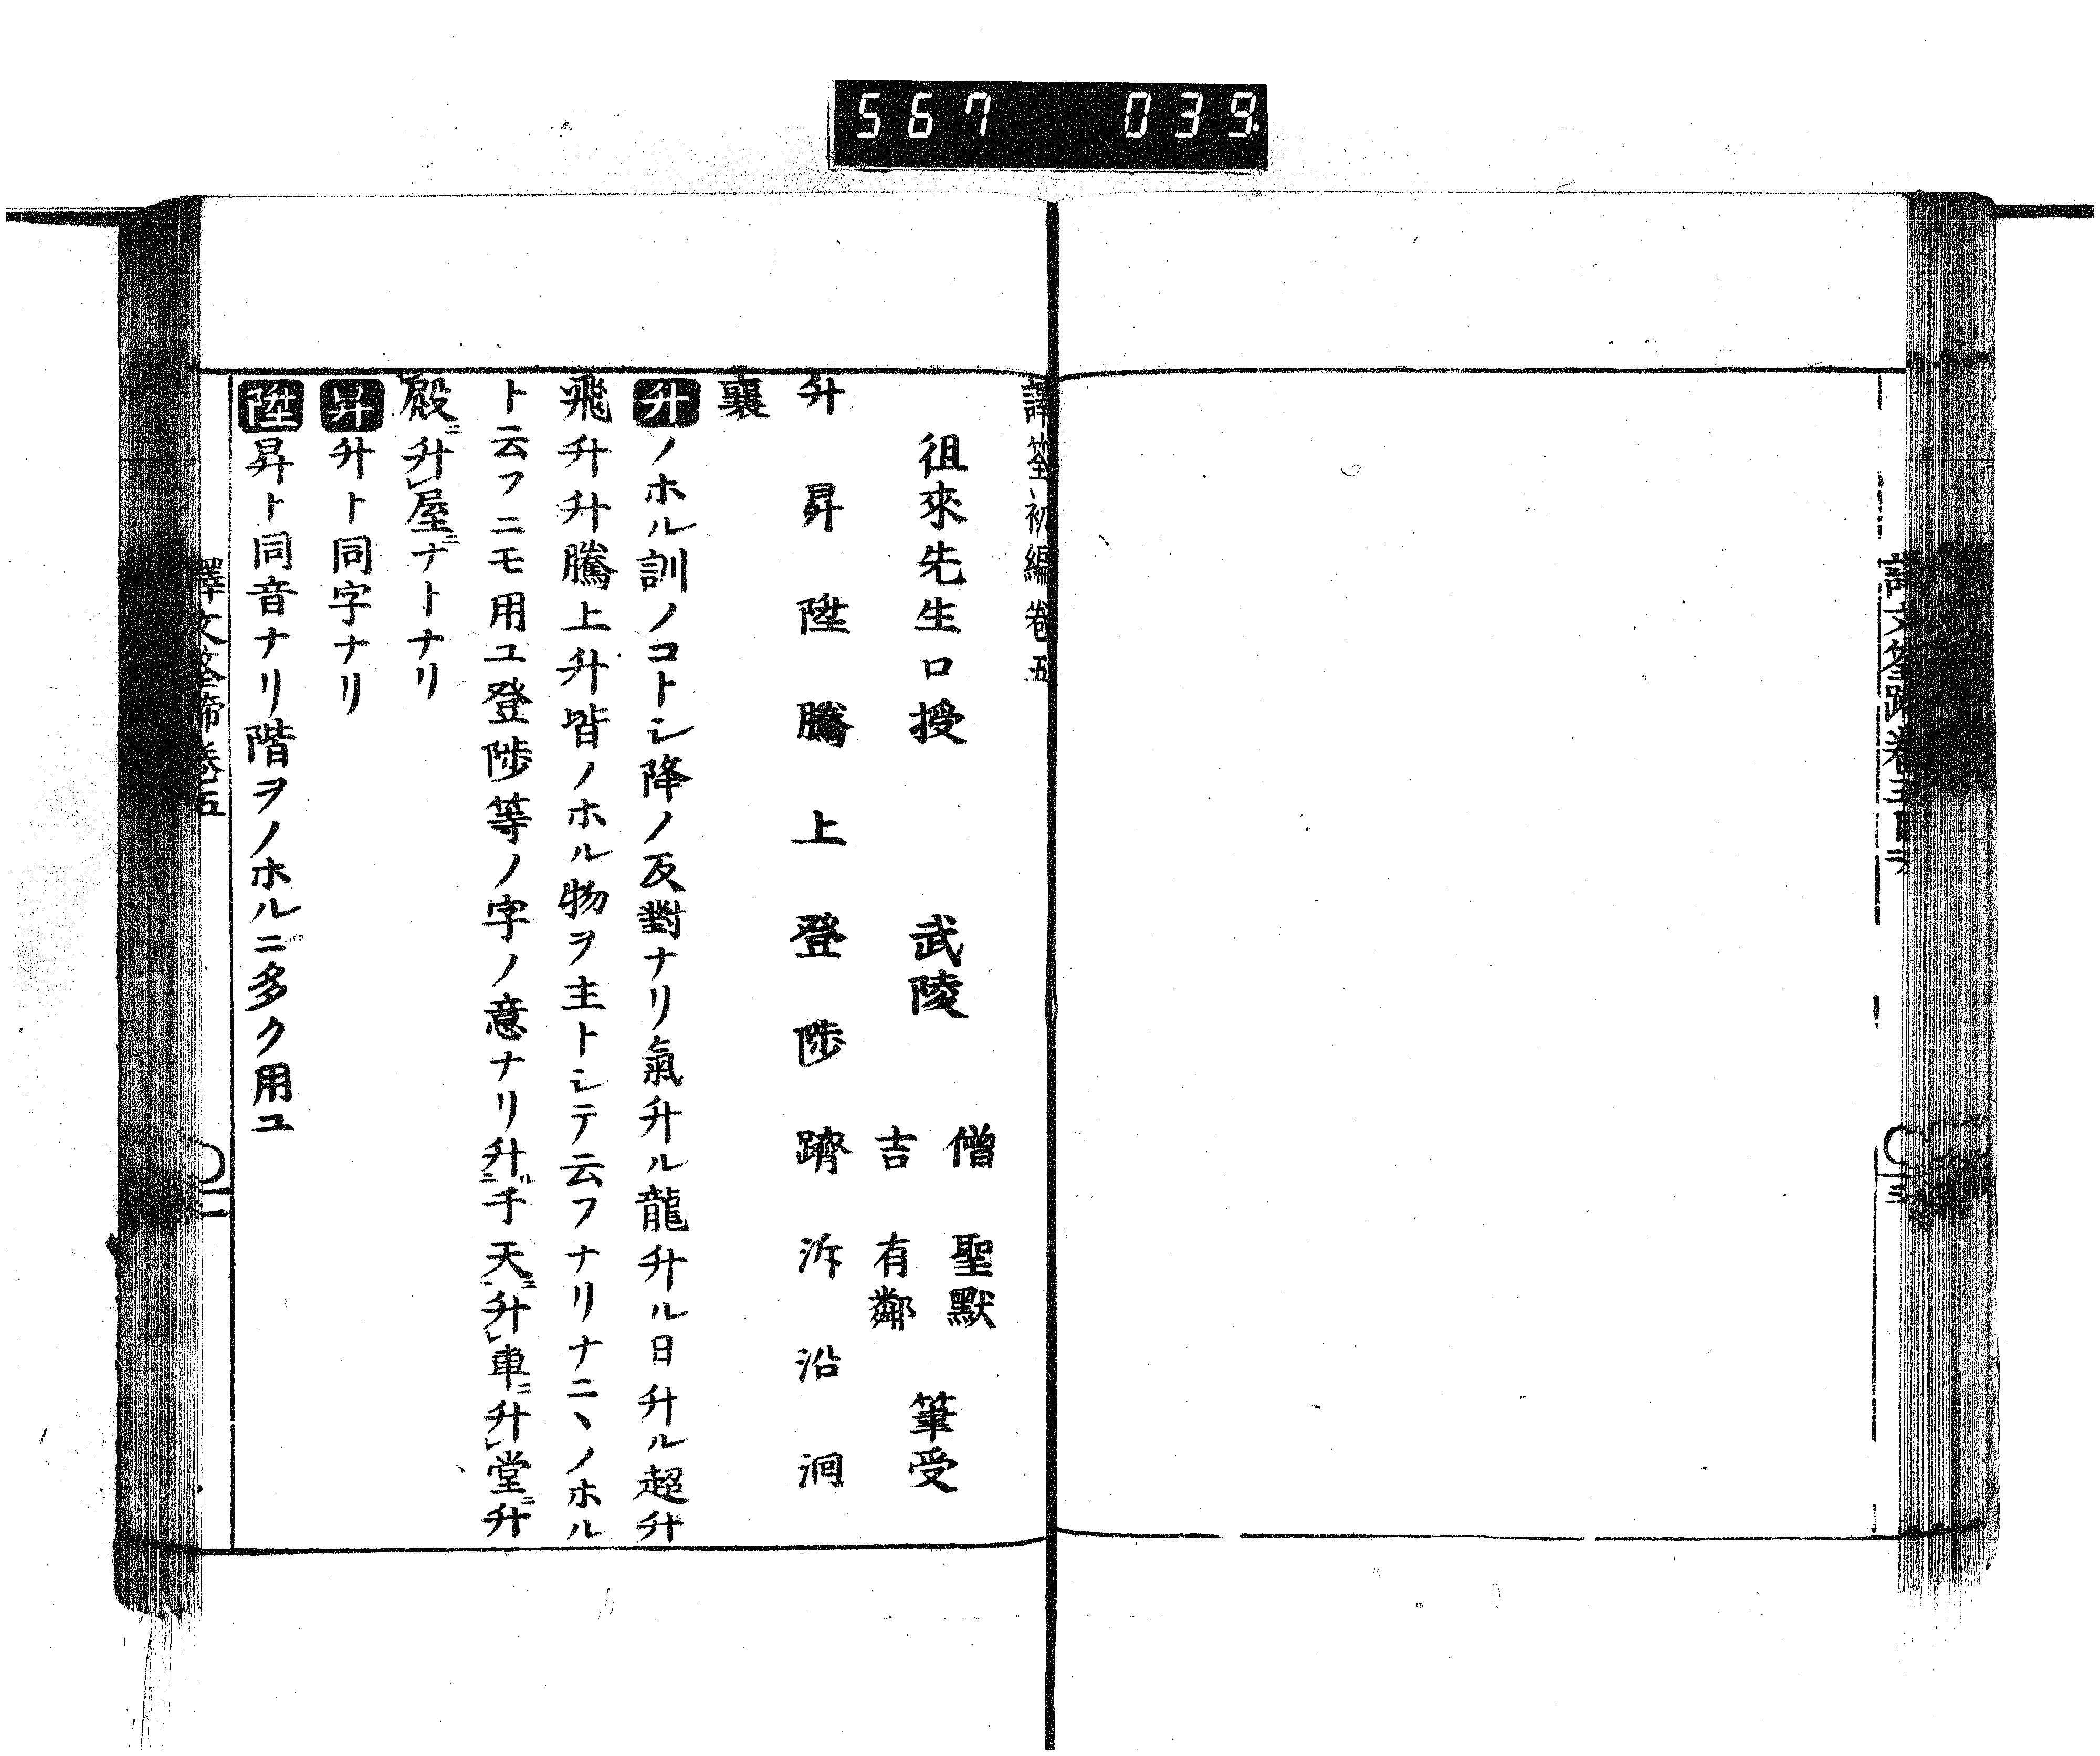 567 039.
譯筌初編卷五
徂來先生口授 武陵 僧 聖默 吉 有鄰 筆受
升 昇 陞 騰 上 登 陟 躋 泝 沿 泂
襄
升ノホル訓ノコトシ降ノ反對ナリ氣升ル龍升ル日升ル超升
飛升升騰上升皆ノホル物ヲ主トシテ云フナリナニヽノホル
ト云フニモ用ユ登陟等ノ字ノ意ナリ升于天ニ升レ車ニ升レ堂ニ升
殿ニ升レ屋ニナトナリ
昇升ト同字ナリ
陞昇ト同音ナリ階ヲノホルニ多ク用ユ
譯文筌蹄卷五